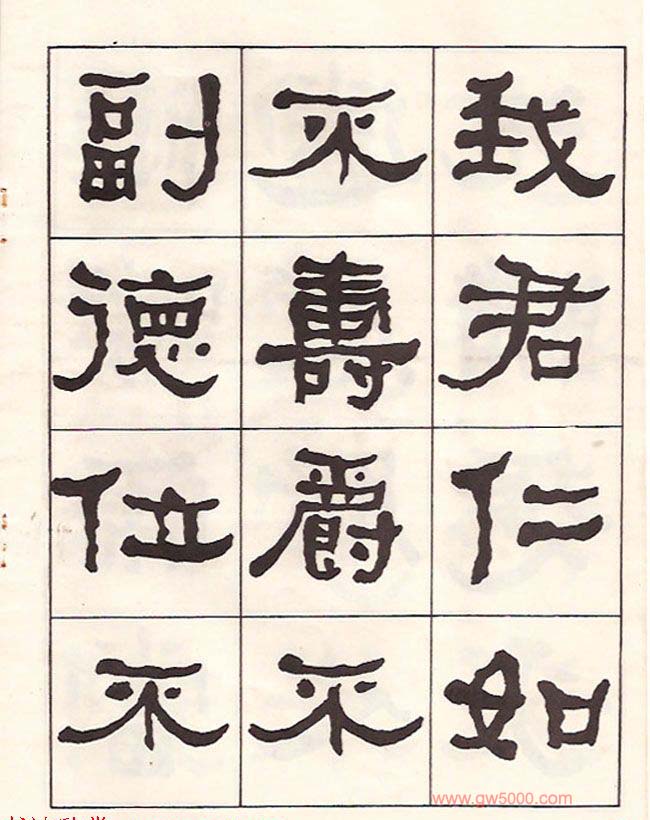 我君仁如
不壽爵不
副德位不
www.gw5000.com